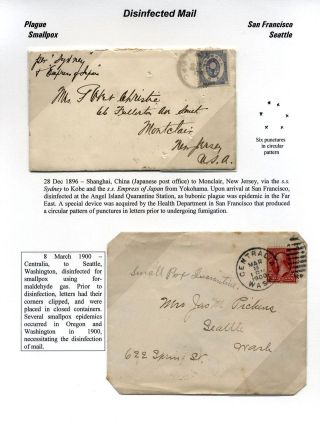 Disinfected Mail
Plague
Smallpox
San Francisco
Seattle
per "Sydney"
& Empress of Japan
Mrs. F. Christie
66 Fullerton Ave
Montclair
New Jersey
U.S.A.
Six punctures
in circular
pattern
28 Dec 1896 – Shanghai, China (Japanese post office) to Monclair, New Jersey, via the s.s.
Sydney to Kobe and the s.s. Empress of Japan from Yokohama. Upon arrival at San Francisco,
disinfected at the Angel Island Quarantine Station, as bubonic plague was epidemic in the Far
East. A special device was acquired by the Health Department in San Francisco that produced
a circular pattern of punctures in letters prior to undergoing fumigation.
8 March 1900 –
Centralia, to Seattle,
Washington, disinfected for
smallpox using for-
maldehyde gas. Prior to
disinfection, letters had their
corners clipped, and were
placed in closed containers.
Several smallpox epidemics
occurred in Oregon and
Washington in 1900,
necessitating the disinfection
of mail.
CENTRALIA
MAR
8
1900
WASH
Small Pox Quarantine
Mrs Jas M. Pickens
Seattle
Wash
622 Spring St.